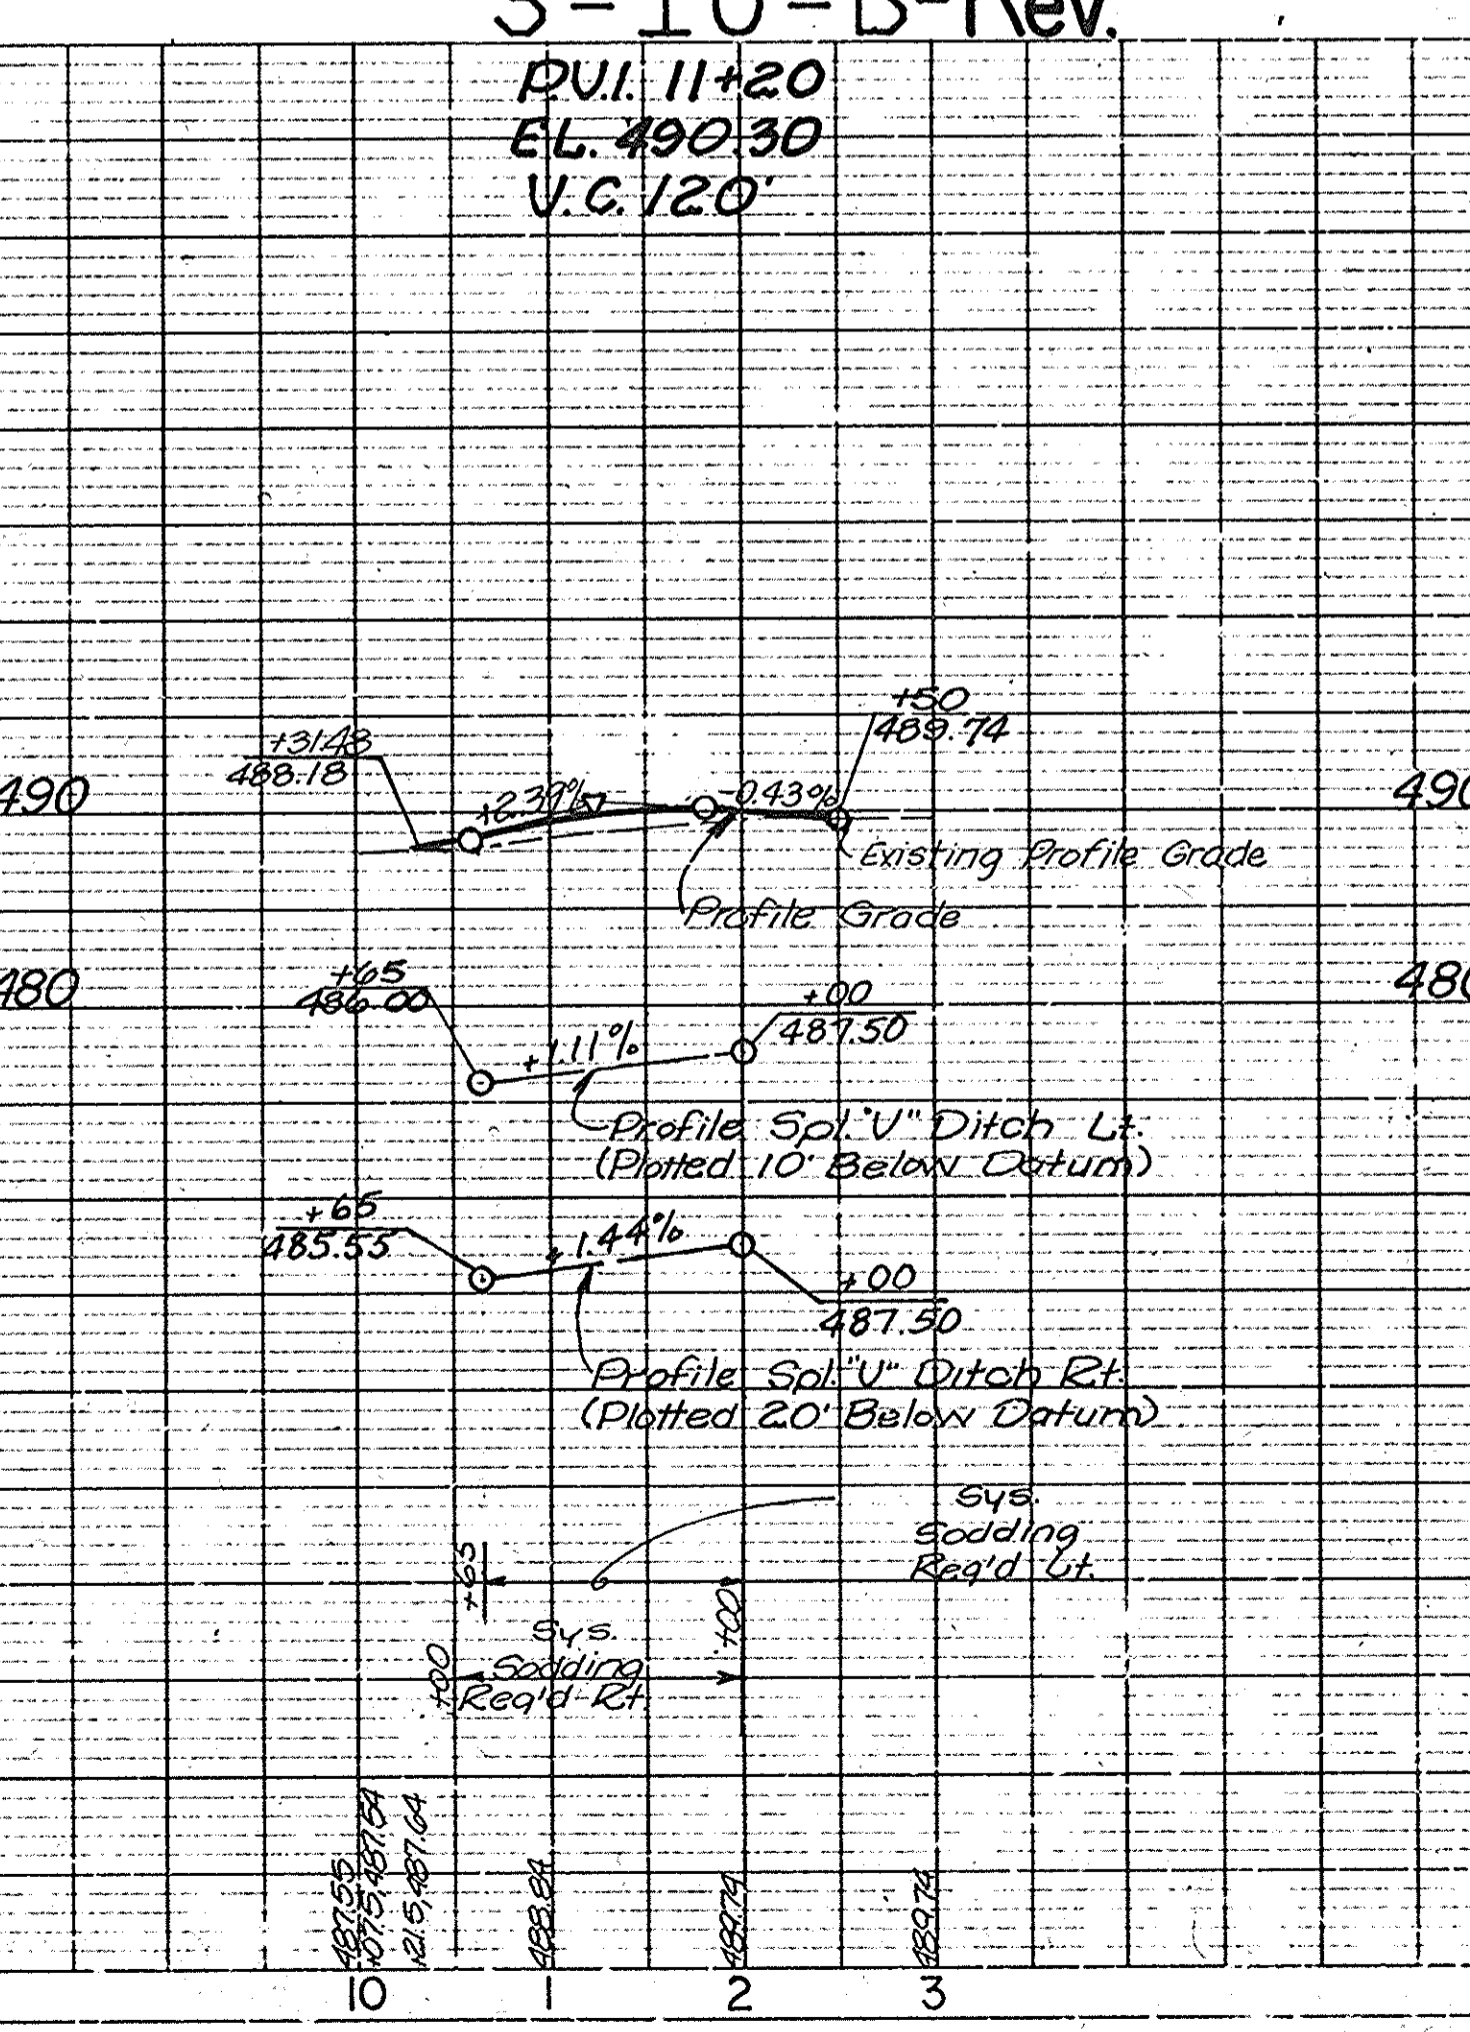 S-10-B-Rev.
P.V.I. 11+20
EL. 490.30
V.C. 120'
+50
489.74
+31.48
488.18
490
+2.39%
-0.43%
490
Existing Profile Grade
Profile Grade
480
+65
486.00
+00
487.50
480
+1.11%
Profile Spl. "V" Ditch Lt.
(Plotted 10' Below Datum)
+65
485.55
+1.44%
+00
487.50
Profile Spl. "V" Ditch Rt.
(Plotted 20' Below Datum)
Sys.
Sodding
Req'd Lt.
+65
+00
Sys.
Sodding
Req'd Rt.
+00
487.55
+07.5, 487.54
+21.5, 487.64
488.84
489.74
489.74
10
1
2
3